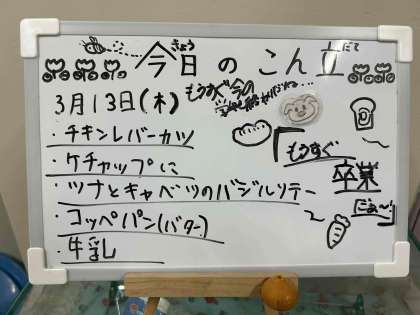 今日のこん立
きょう だて
3月13日(木)
もうすぐ今の
・チキンレバーカツ
・ケチャップに
・ツナとキャベツのバジルソテー
・コッペパン(バター)
・牛乳
もうすぐ
卒業
だぁ～